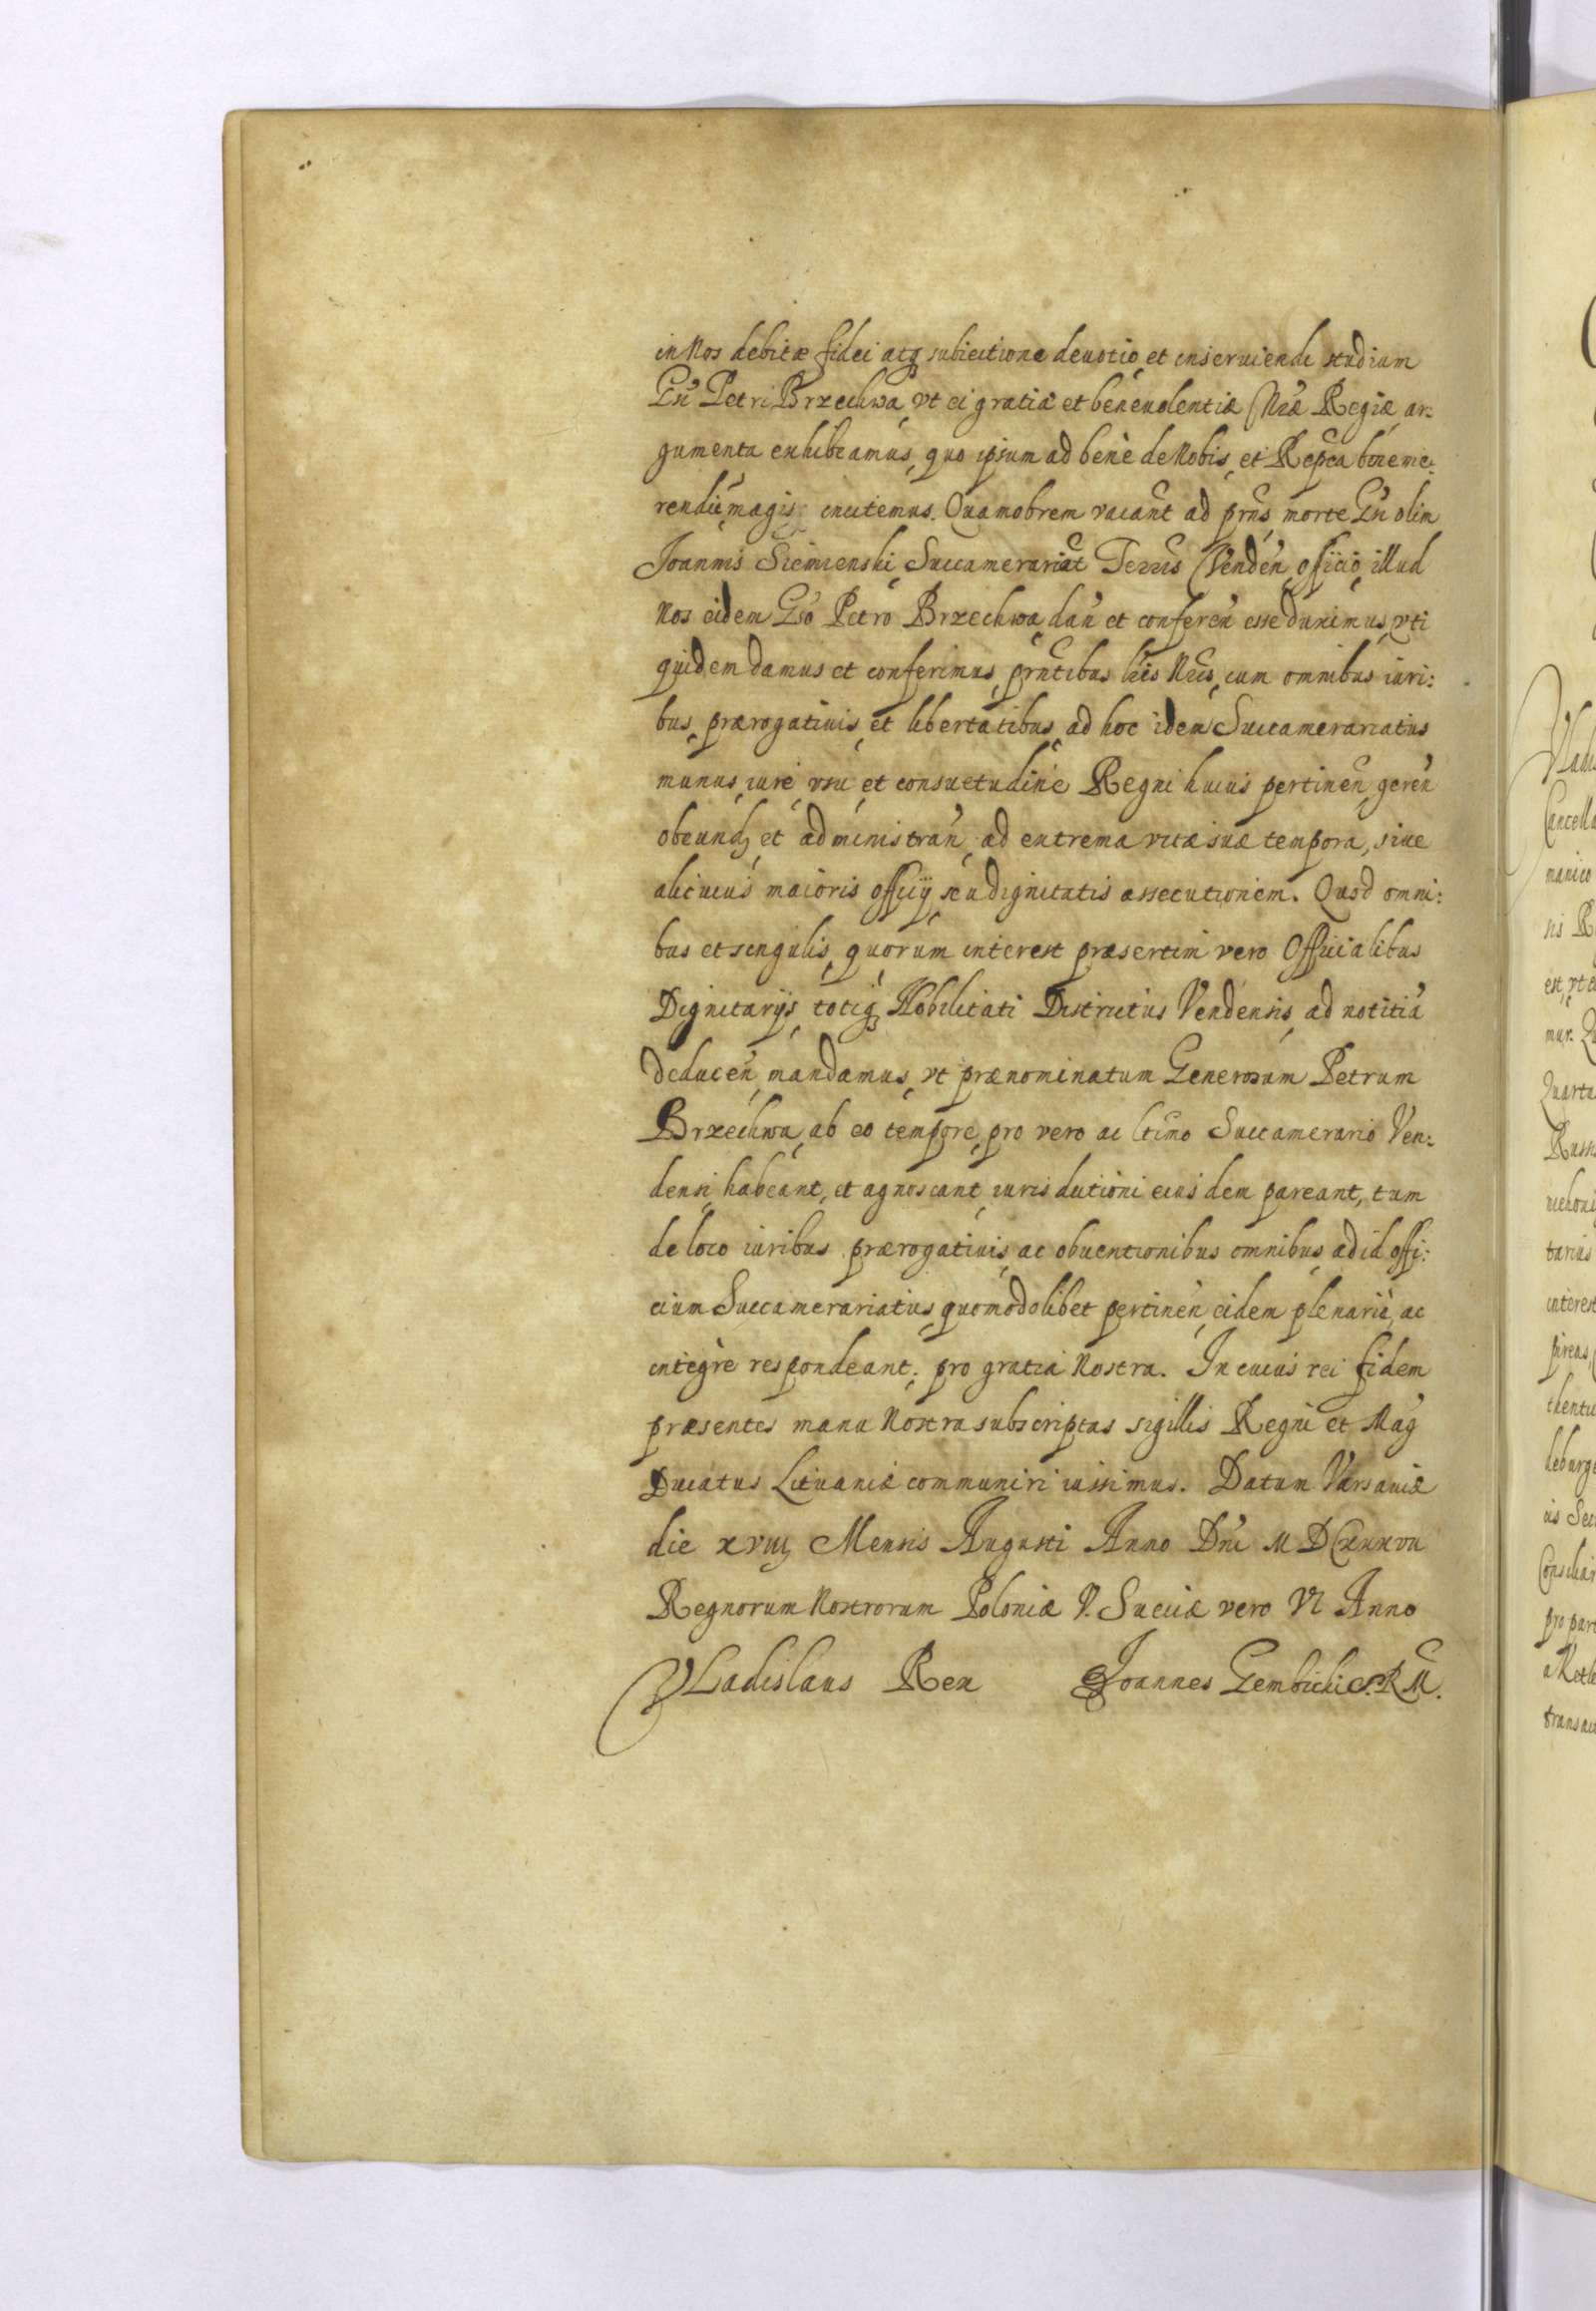 in Nos debitæ fidei atq subiectione deuotio, et inseruiendi studium
Gn̄i Petri Brzechwa, vt ei gratiæ et beneuolentiæ Nr̄æ Regiæ ar:
gumenta exhibeamus, quo ipsum ad benè de Nobis, et Repca bene me:
rendū magis incitemus. Quamobrem vacant̄ ad prn̄s morte Gn̄i olim
Joannis Siemienski, Succamerariat̄ Terris Venden̄, officio, illud
Nos eidem Gn̄o Petro Brzechwa, dan̄ et conferen̄ esse duximus, vti
quidem damus et conferimus, prn̄tibus lr̄is Nr̄is, cum omnibus iuri:
bus, prærogatiuis, et libertatibus, ad hoc idem Succamerariatus
munus, iure, vsu, et consuetudine Regni huius pertinen̄, geren̄
obeund, et administran̄, ad extrema vitæ suæ tempora, siue
alicuius maioris officij seu dignitatis assecutionem. Quod omni:
bus et singulis, quorum interest præsertim vero Officialibus
Dignitarijs, totiq Nobilitati Districtus Vendensis, ad notitiā
deducen̄, mandamus, vt prænominatum Generosum Petrum
Brzechwa, ab eo tempore, pro vero ac ltimo Succamerario Ven:
densi, habeant, et agnoscant, iurisdictioni eius dem pareant, tum
de loco iuribus prærogatiuis, ac obuentionibus omnibus, ad id offi:
cium Succamerariatus, quomodolibet pertinen̄, eidem plenariè, ac
integrè respondeant, pro gratia Nostra. In cuius rei fidem
præsentes manu Nostra subscriptas sigillis Regni et Mag
Ducatus Lituaniæ communiri iussimus. Datum Varsauiæ
die xviij Mensis Augusti Anno Dn̄i MDCxxxvii
Regnorum Nostrorum Poloniæ V. Sueciæ vero VI Anno
Vladislaus Rex Joannes Gembicki S.R.M.